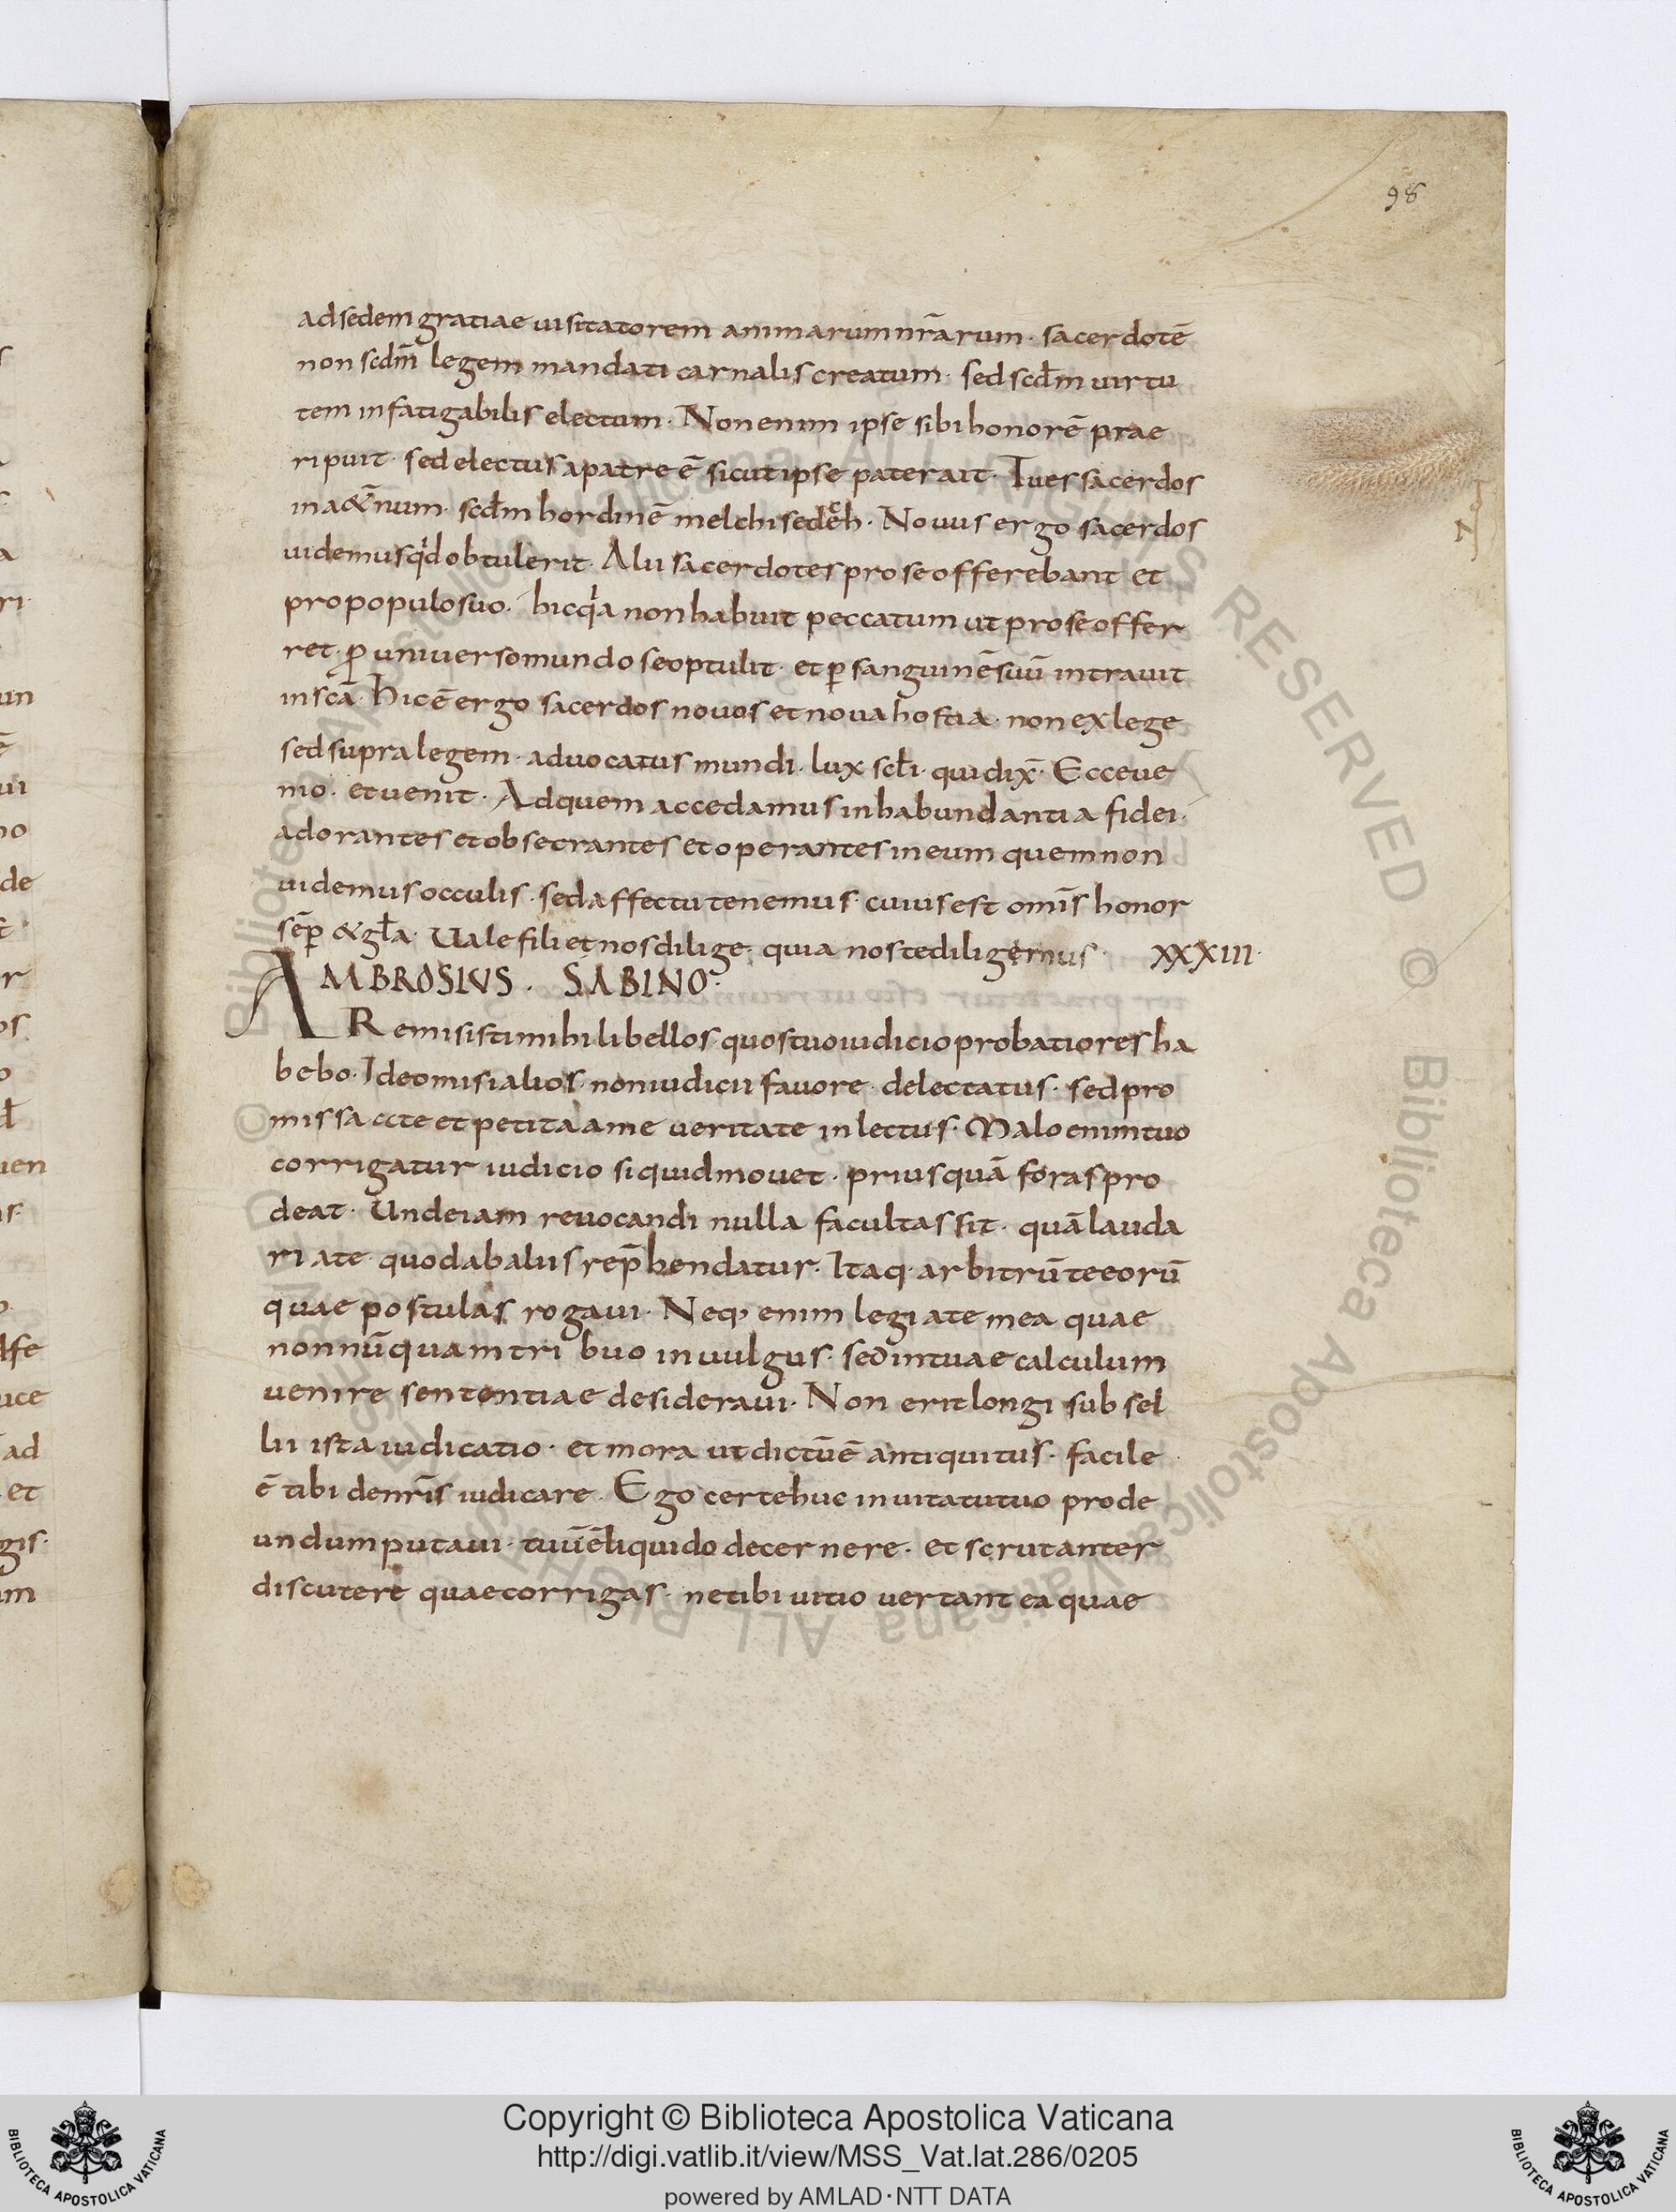 98
ad sedem gratiae uisitatorem animarum nr̄arum · sacerdotē
non scdm̄ legem mandati carnalis creatum · sed scdm̄ uirtu
tem infatigabilis electum · Non enim ipse sibi honorē prae
ripuit · sed electus a patre ē sicut ipse pater ait · Tu es sacerdos
in a&̄rnum · scdm̄ hordinē melchisedech · Nouus ergo sacerdos
uidemus qid obtulerit · Alii sacerdotes pro se offerebant et
pro populo suo · hic qia non habuit peccatum ut pro se offer
ret · ꝓ uniuerso mundo se optulit · et ꝑ sanguinē suū intrauit
in scā · hic ē ergo sacerdos nouos et noua hostia · non ex lege
sed supra legem · aduocatus mundi · lux scl̄i · qui dix̄ · Ecce ue
nio · et uenit · Ad quem accedamus in habundantia fidei ·
adorantes et obsecrantes et operantes in eum quem non
uidemus occulis · sed affectu tenemus · cuius est om̄is honor
sēp &gl̄a · Uale fili et nos dilige · quia nos te diligemus · XXXIII ·
AMBROSIUS · SABINO ·
Remisisti mihi libellos quos tuo iudicio probatiores ha
bebo · Ideo misi alios · non iudicii fauore delectatus · sed pro
missa cite et petita a me ueritate inlectus · Malo enim tuo
corrigatur iudicio si quid mouet · priusquā foras pro
deat · Unde iam reuocandi nulla facultas sit · quā lauda
ri a te quod ab aliis rep̄hendatur · Itaq · arbitrū te eorū
quae postulas rogaui · Neq; enim legi a te mea quae
nonnūquam tri buo in uulgus · sed in tuae calculum
uenire sententiae desideraui · Non erit longi subsel
lii ista iudicatio · et mora ut dictū ē antiquitus · facile
ē tibi de nr̄is iudicare · Ego certe huc inuitatu tuo prode
undum putaui · tuū ē liquido decernere · et scrutanter
discutere quae corrigas · ne tibi uitio uertant ea quae
Copyright © Biblioteca Apostolica Vaticana
http://digi.vatlib.it/view/MSS_Vat.lat.286/0205
powered by AMLAD·NTT DATA